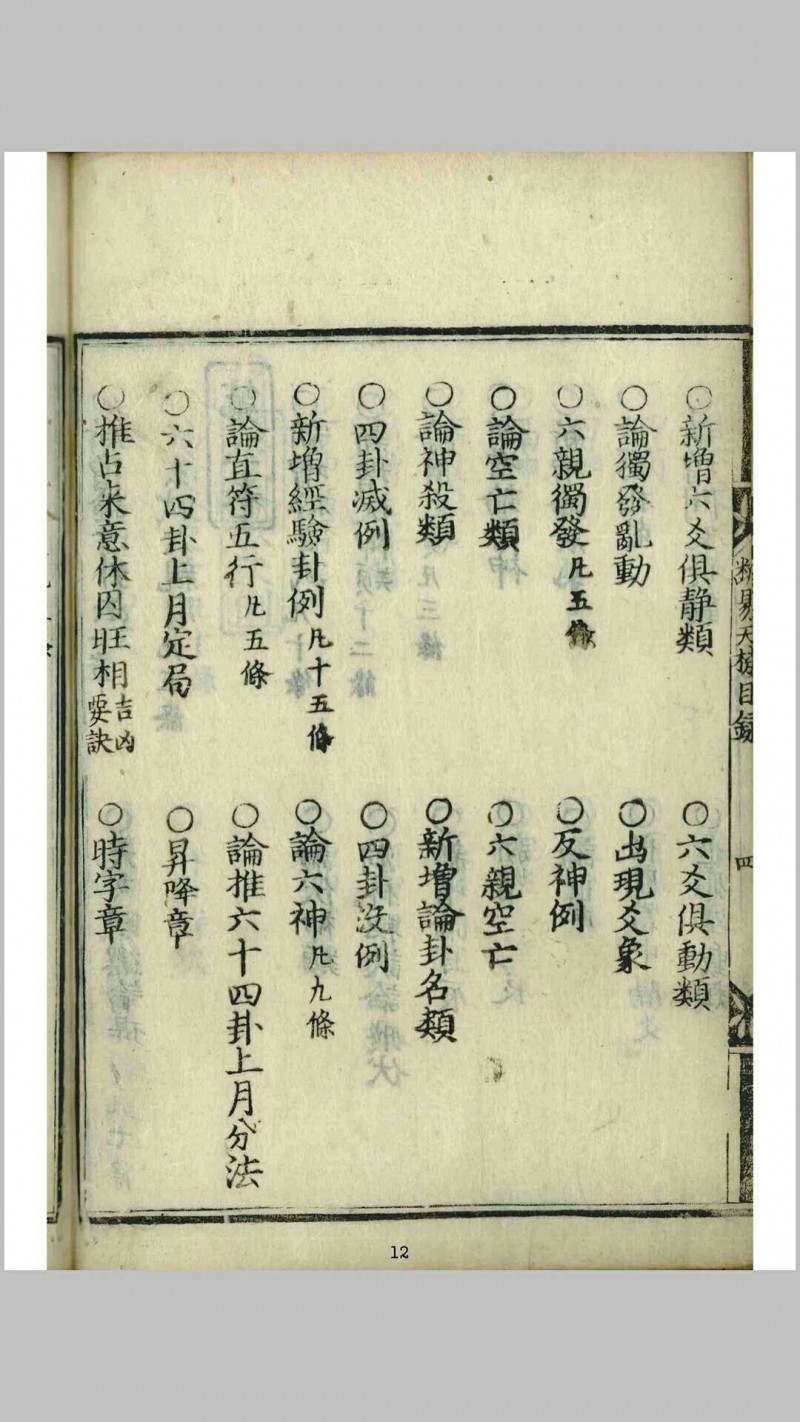 類易天機目錄
四
○新增六爻俱静類
○六爻俱動類
○論獨發亂動
○出現爻象
○六親獨發凡五條
○反神例
○論空亡類
○六親空亡
○論神殺類
○新增論卦名類
○四卦滅例
○四卦没例
○新增經驗卦例凡十五條
○論六神凡九條
○論直符五行凡五條
○論推六十四卦上月分法
○六十四卦上月定局
○昇降章
○推占来意休囚旺相吉凶要訣
○時字章
12